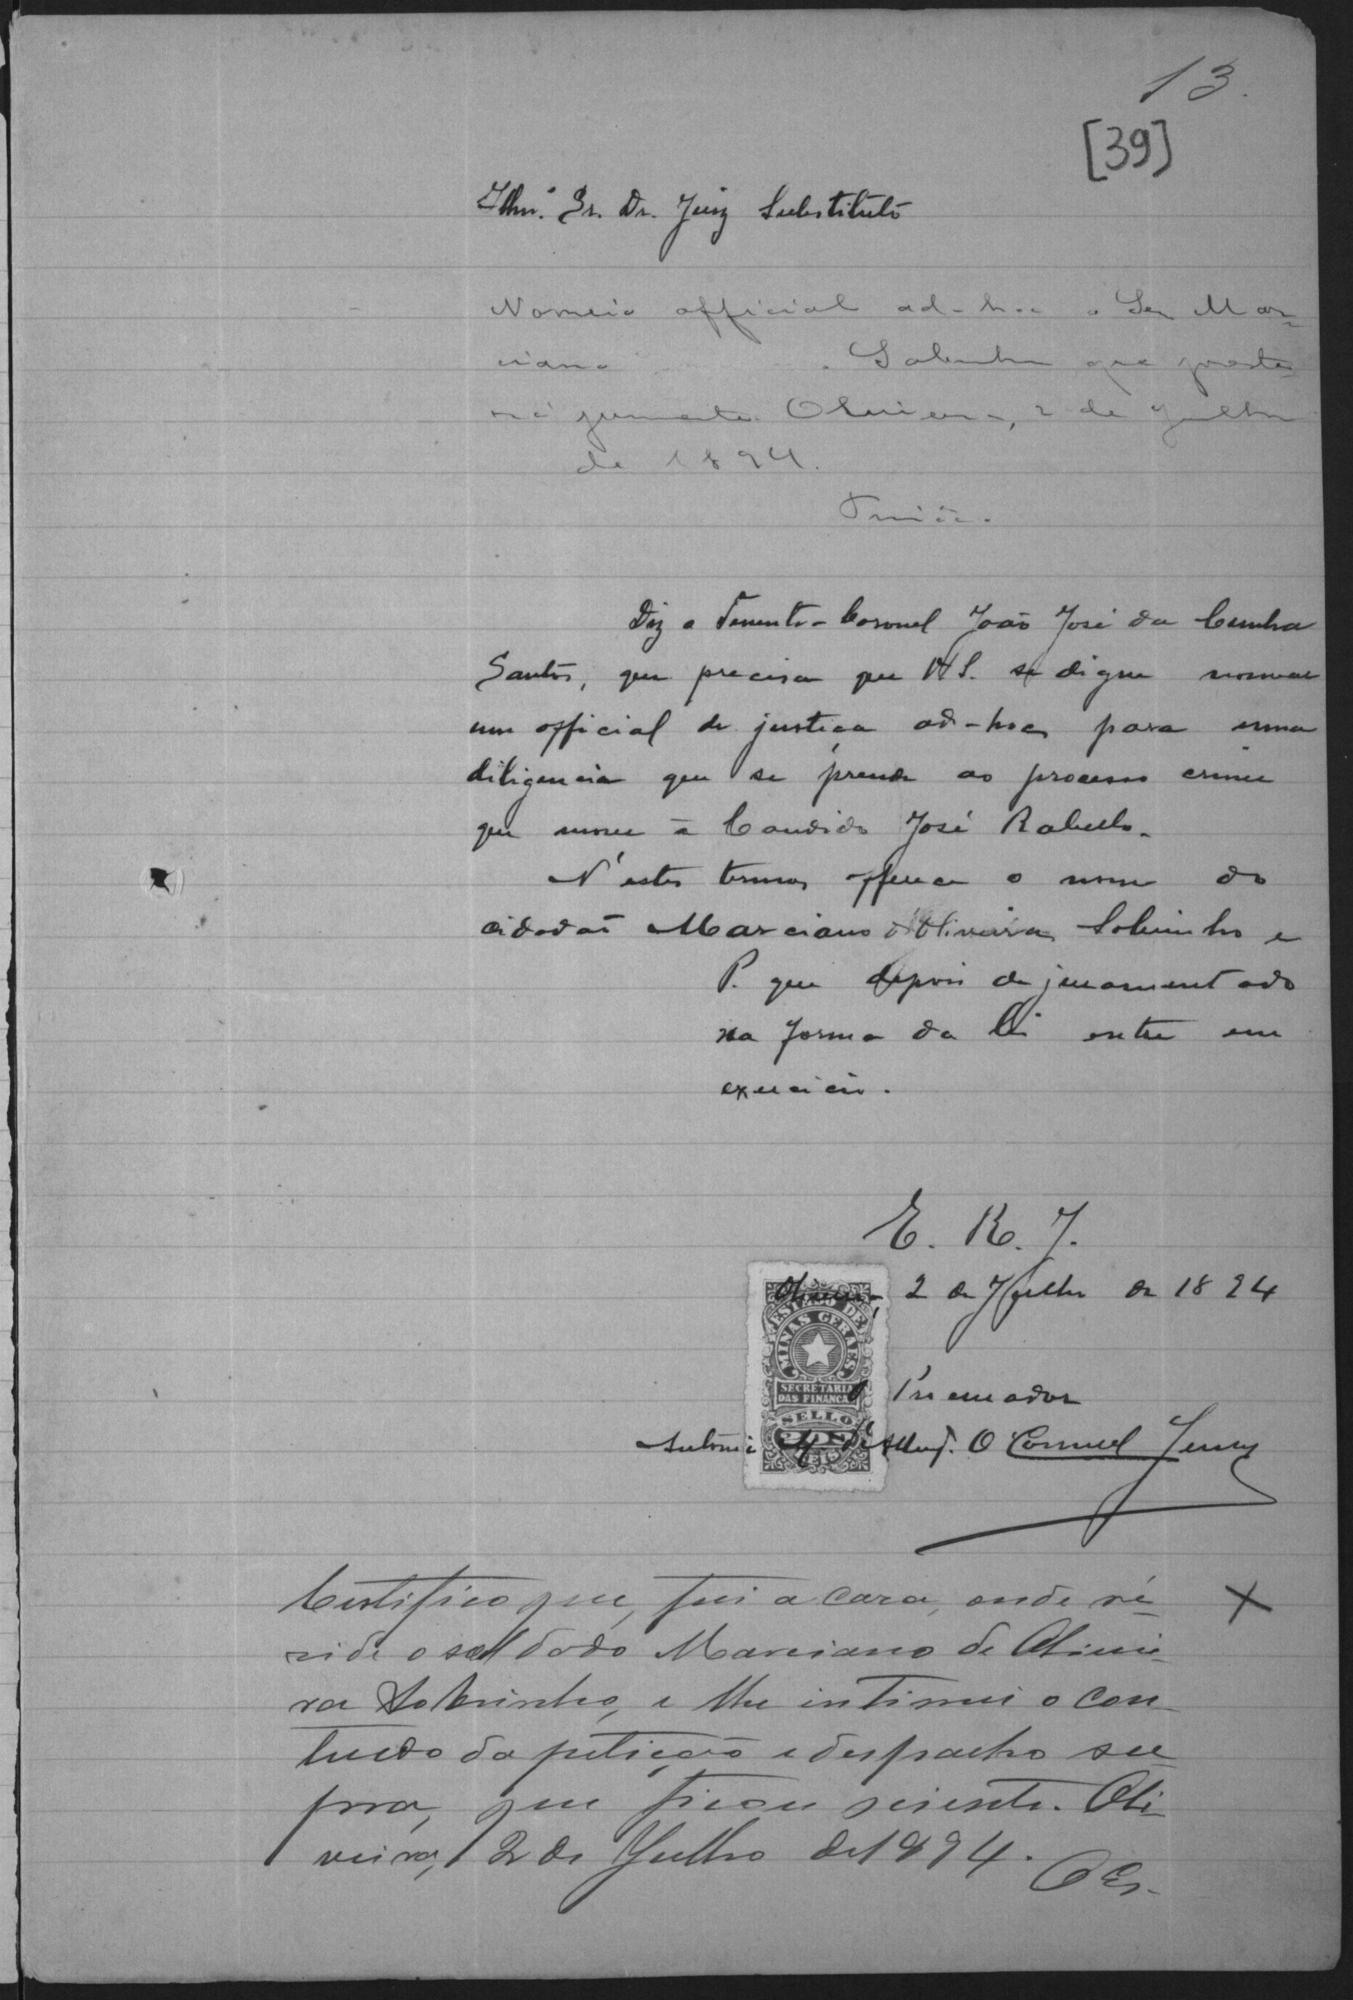 13.
[39]
Illmº. Sr. Dr. Juiz Substituto
Nomeio official ad-hoc o Snr Mar-
ciano Sobrinho que presta-
rá juramento. Oliveira, 2 de Julho
de 1894.
Diz o Tenente-Coronel João José da Cunha
Santos, que precisa que V. S. se digne nomear
um official de justiça ad-hoc, para uma
diligencia que se prende ao processo crime
que move á Candido José Rabello.
N'estes termos offerece o nome do
cidadão Marciano d'Oliveira Sobrinho e
P. que depois de juramentado
na forma da lei entre em
exercicio.
E. R. J.
Oliveira, 2 de Julho de 1894
ESTADO DE
MINAS GERAES
SECRETARIA
DAS FINANÇAS
SELLO
200
REIS
O Procurador
Antonio O Connuel Jersey
Certifico que, fui a casa, onde re-
side o soldado Marciano de Olivei-
ra Sobrinho, e lhe intimei o con-
tuedo da petição e despacho su-
pra, que ficou sciente. Oli-
veira, 2 de Julho de 1894.
O Es.